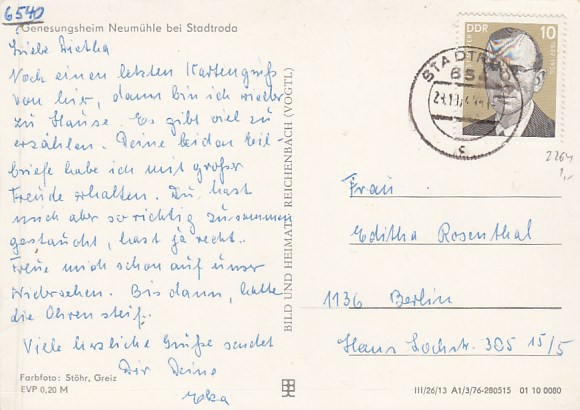 6540
Genesungsheim Neumühle bei Stadtroda
Liebe Dietha
Noch einen letzten Kartengruß
von hier, dann bin ich wieder
zu Hause. Es gibt viel zu
erzählen. Deine beiden Eil-
briefe habe ich mit großer
Freude erhalten. Du hast
mich aber so richtig zusammen
gestaucht, hast ja recht..
Freue mich schon auf unser
Wiedersehen. Bis dann, halte
die Ohren steif.
Viele herzliche Grüße sendet
Dir Deine
Farbfoto: Stöhr, Greiz
EVP 0,20 M
BILD UND HEIMAT REICHENBACH (VOGTL)
DDR 10
STADTRODA
c
2264
1,-
Frau
Editha Rosenthal
1136 Berlin
Hans Lochstr. 305 15/5
III/26/13 A1/3/76-280515 01 10 0080